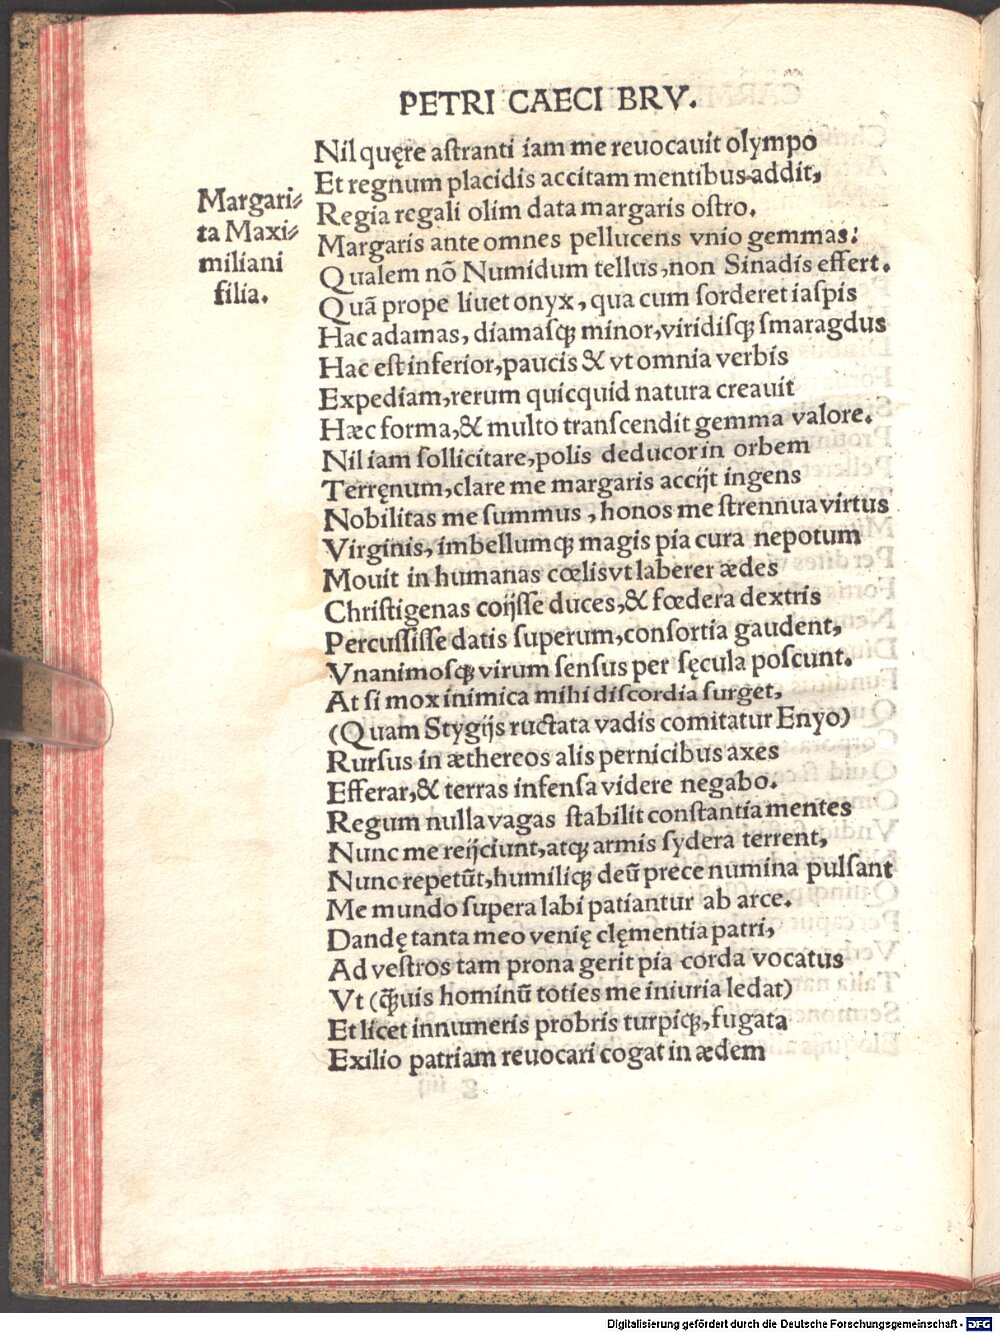 PETRI CAECI BRV.
Nil quęre aſtranti iam me reuocauit olympo
Et regnum placidis accitam mentibus addit,
Regia regali olim data margaris oſtro.
Margaris ante omnes pellucens vnio gemmas:
Qualem nō Numidum tellus, non Sinadis effert.
Quā prope liuet onyx, qua cum ſorderet iaſpis
Hac adamas, diamaſqꝫ minor, viridiſqꝫ ſmaragdus
Hac eſt inferior, paucis & vt omnia verbis
Expediam, rerum quicquid natura creauit
Hæc forma, & multo tranſcendit gemma valore.
Nil iam ſollicitare, polis deducor in orbem
Terręnum, clare me margaris accijt ingens
Nobilitas me ſummus, honos me ſtrennua virtus
Virginis, imbellumqꝫ magis pia cura nepotum
Mouit in humanas cœlis vt laberer ædes
Chriſtigenas coijſſe duces, & fœdera dextris
Percuſſiſſe datis ſuperum, conſortia gaudent,
Vnanimoſqꝫ virum ſensus per ſęcula poſcunt.
At ſi mox inimica mihi diſcordia ſurget,
(Quam Stygijs ructata vadis comitatur Enyo)
Rurſus in æthereos alis pernicibus axes
Efferar, & terras infenſa videre negabo.
Regum nulla vagas ſtabilit conſtantia mentes
Nunc me reijciunt, atqꝫ armis ſydera terrent,
Nunc repetūt, humiliqꝫ deū prece numina pulſant
Me mundo ſupera labi patiantur ab arce.
Dandę tanta meo venię clęmentia patri,
Ad veſtros tam prona gerit pia corda vocatus
Vt (qꝫ̄uis hominū toties me iniuria ledat)
Et licet innumeris probris turpiqꝫ, fugata
Exilio patriam reuocari cogat in ædem
Margari⸗
ta Maxi⸗
miliani
filia.
Digitalisierung gefördert durch die Deutsche Forschungsgemeinschaft - DFG